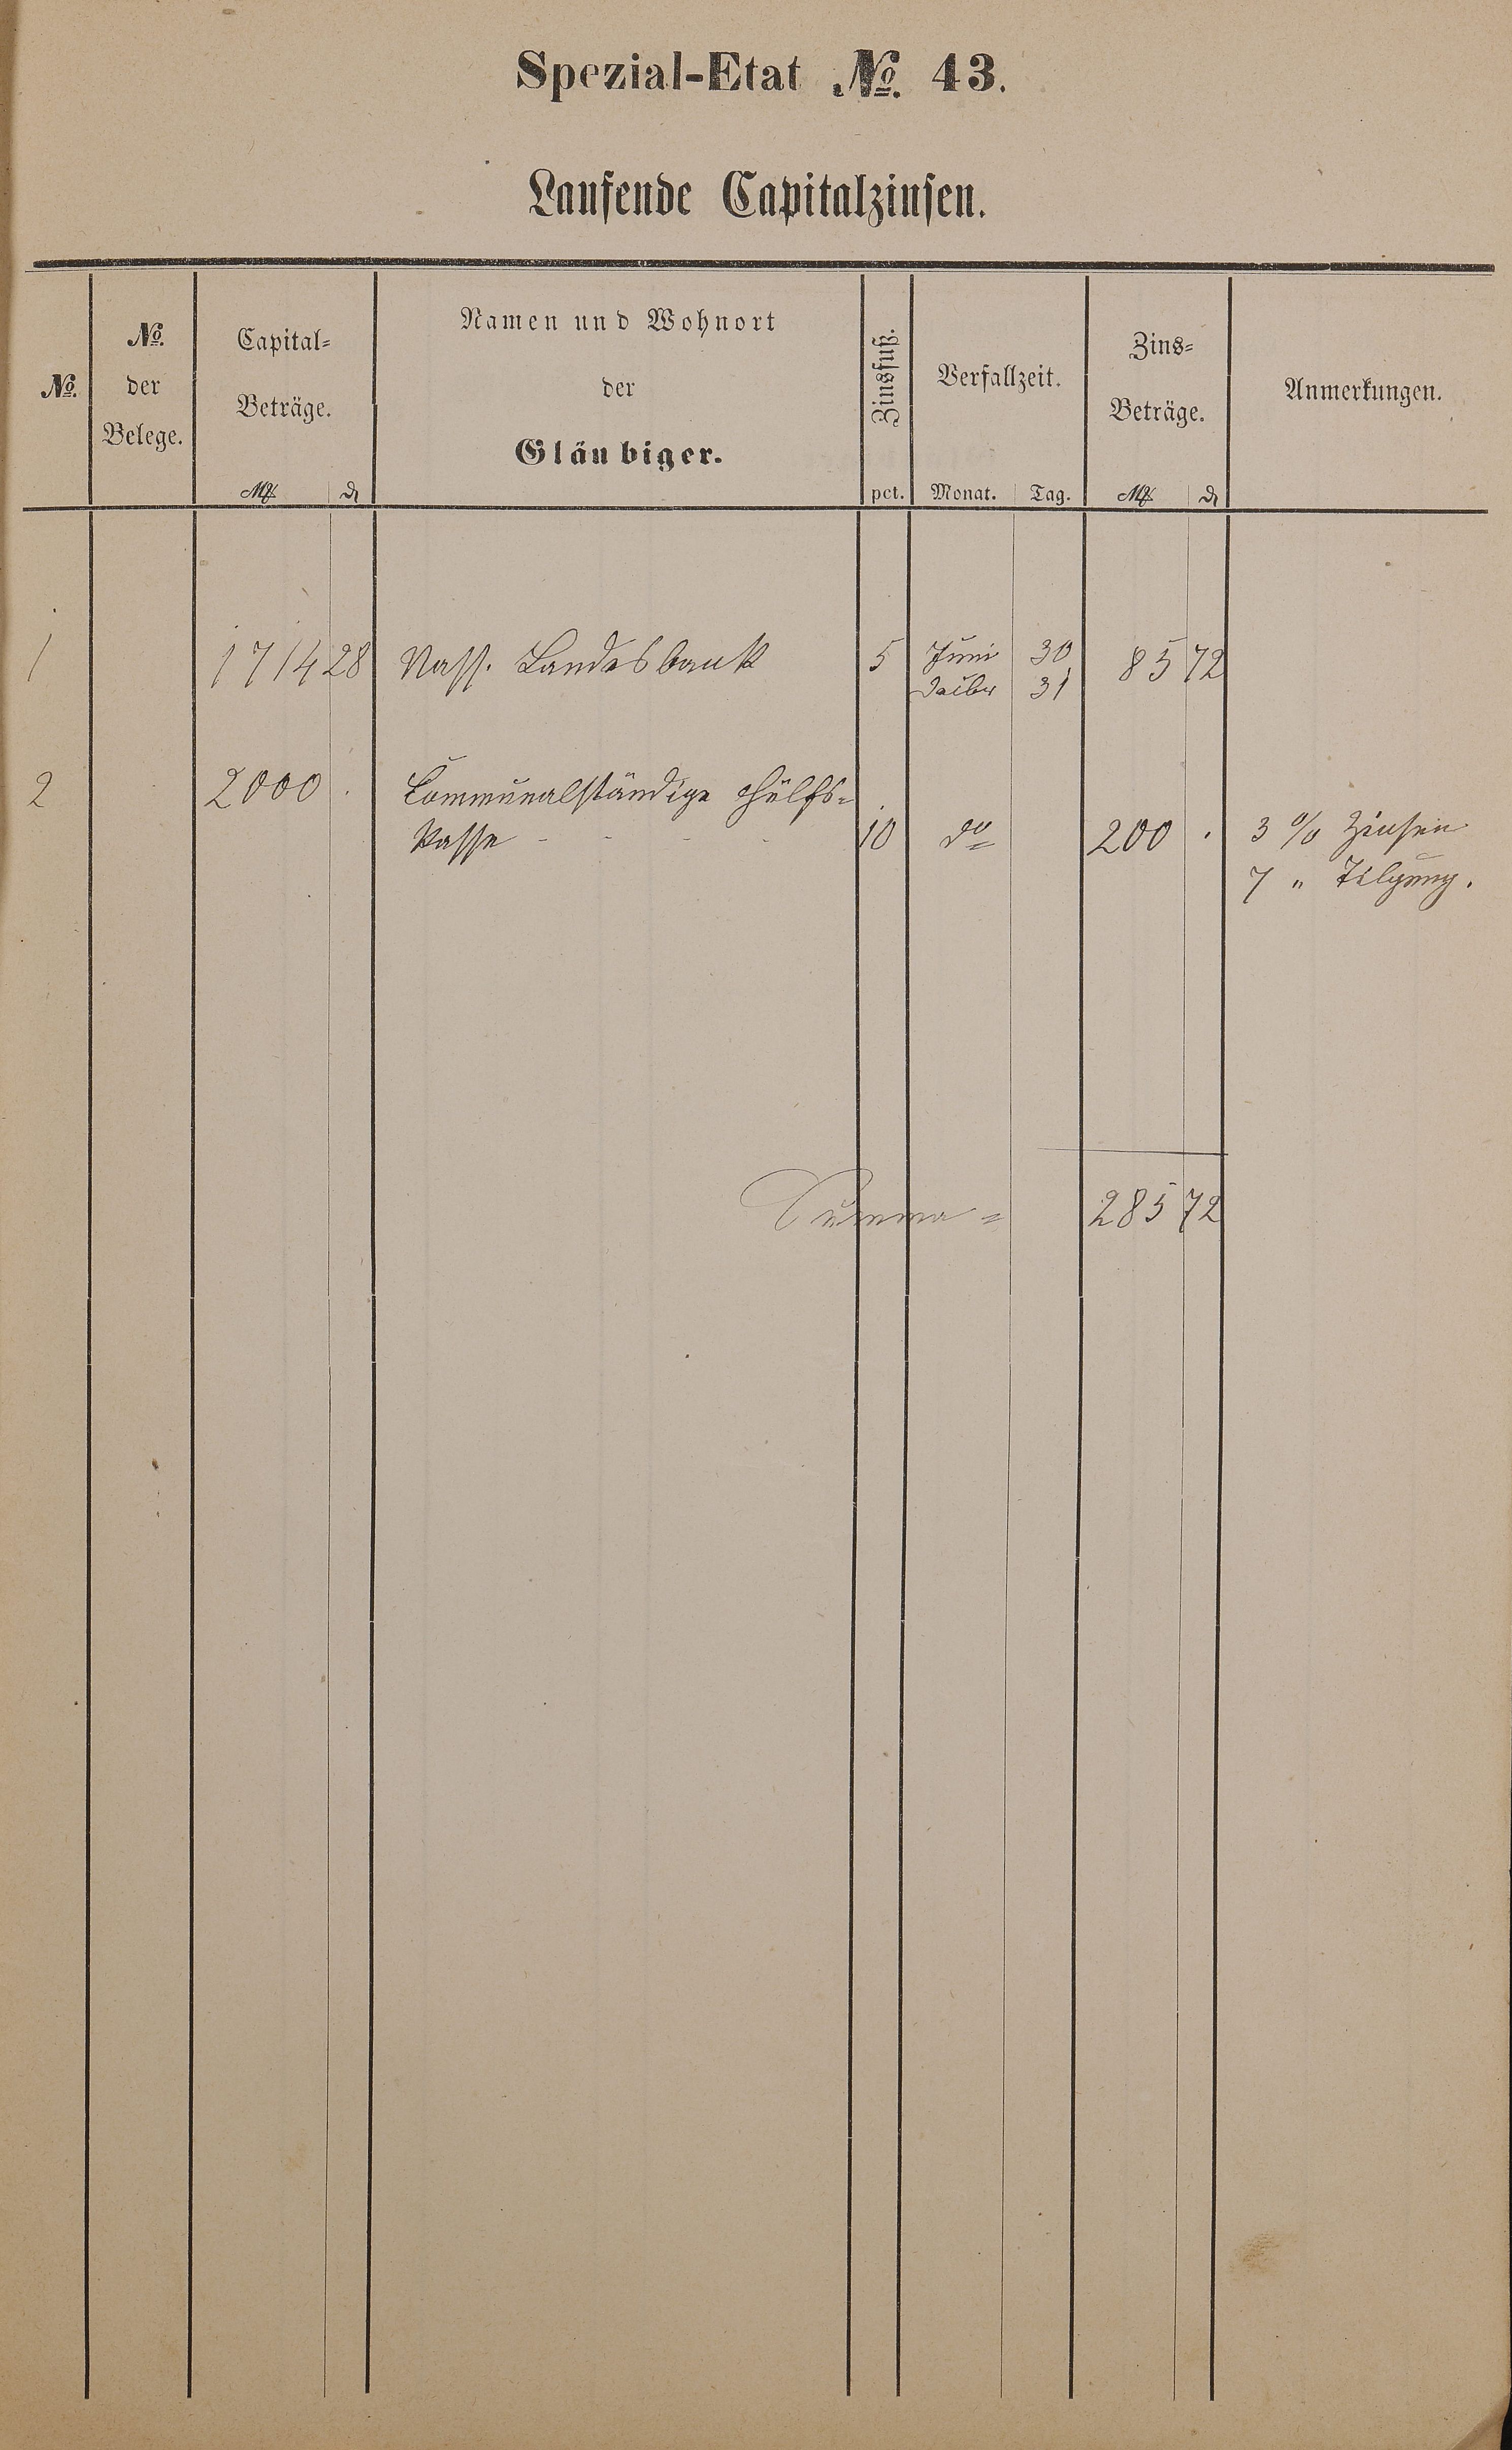 Spezial-Etat No. 43.
Laufende Capitalzinsen.
No.
No.
der
Belege.
Capital-
Beträge.
Namen und Wohnort
der
Gläubiger.
Zinsfuß.
Verfallzeit.
Zins-
Beträge.
Anmerkungen.
M. d pct. Monat. Tag. M. d
1 1714 28 Nass. Landesbank 5 Juni 30 85 72
Decibr 31
2 2000 . Communalständige Hülfs-
kasse - - - - 10 do 200 . 3 % Zinsen
7 " Tilgung.
Summa = 285 72